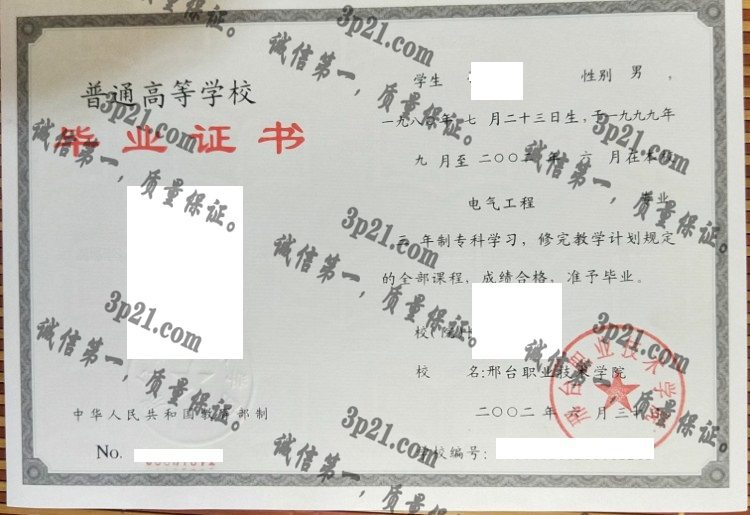 普通高等学校
毕业证书
中华人民共和国教育部制
No.
学生 性别 男，
一九八〇年 七 月二十三日生，于一九九九年
九 月至 二〇〇二 年 六 月在本
电气工程 专业
三 年制专科学习，修完教学计划规定
的全部课程，成绩合格，准予毕业。
校（院）
校 名：邢台职业技术学院
二〇〇二年 六 月三十
学校编号：
邢台职业技术学院
3p21.com
诚信第一，质量保证。
3p21.com
诚信第一，质量保证。
3p21.com
诚信第一，质量保证。
3p21.com
诚信第一，质量保证。
3p21.com
诚信第一，质量保证。
3p21.com
诚信第一，质量保证。
3p21.com
诚信第一，质量保证。